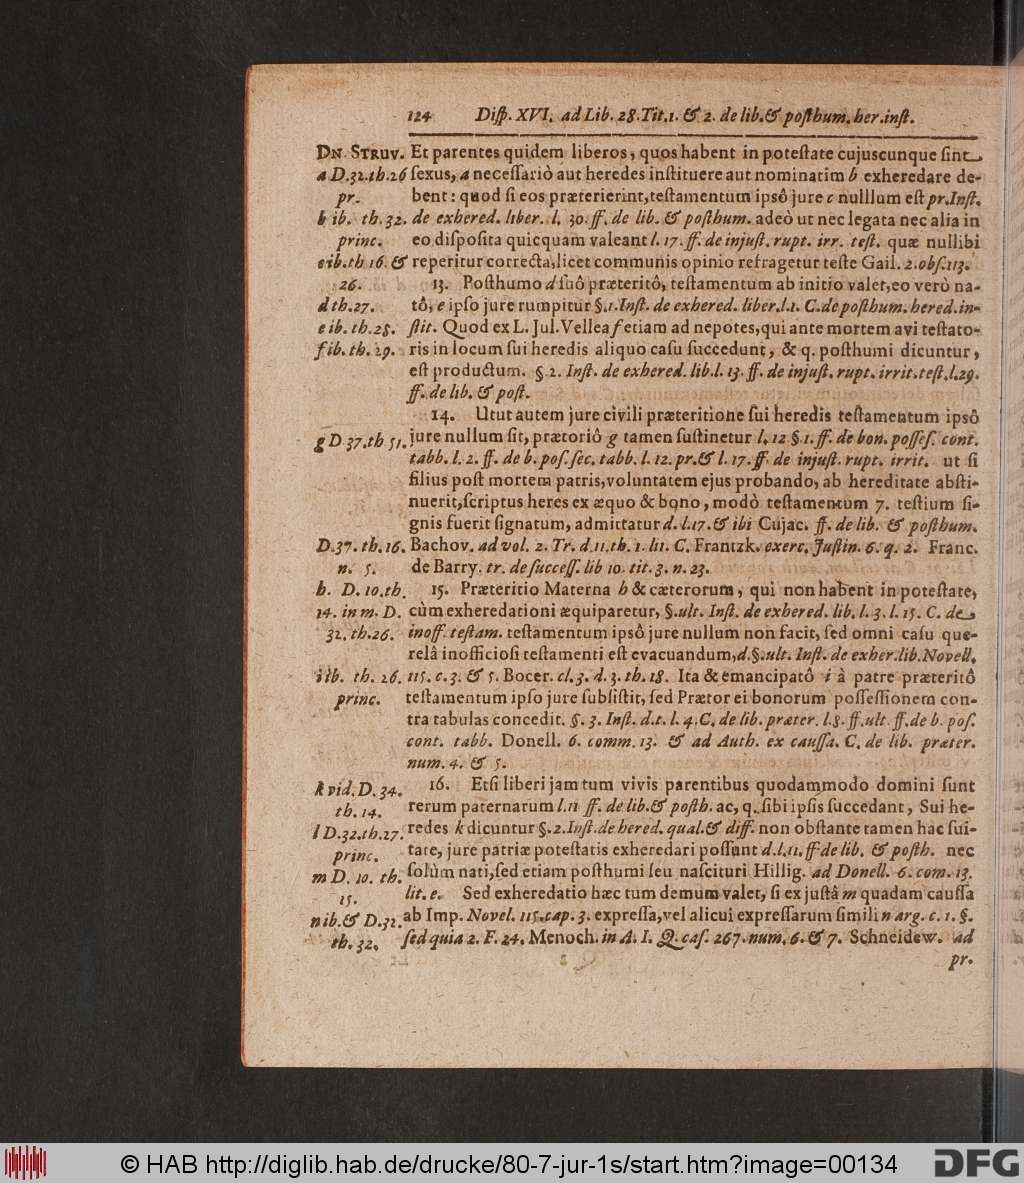 124 Diſp. XVI. ad Lib. 28. Tit. 1. & 2. de lib. & poſthum. her. inſt.
DN. STRUV. Et parentes quidem liberos, quos habent in poteſtate cujuscunque ſint
a D. 32. th. 26 ſexus, a neceſſariò aut heredes inſtituere aut nominatim b exheredare de-
pr. bent: quod ſi eos præterierint, teſtamentum ipsô jure c nulllum eſt pr. Inſt.
b ib. th. 32. de exhered. liber. l. 30. ff. de lib. & poſthum. adeò ut nec legata nec alia in
princ. eo diſpoſita quicquam valeant l. 17. ff. de injuſt. rupt. irr. teſt. quæ nullibi
c ib. th 16. & reperitur correcta, licet communis opinio refragetur teſte Gail. 2. obſ. 113.
26. 13. Poſthumo d ſuô præteritô, teſtamentum ab initio valet, eo verò na-
d th. 27. tô, e ipſo jure rumpitur §. 1. Inſt. de exhered. liber. l. 1. C. de poſthum. hered. in-
e ib. th. 28. ſtit. Quod ex L. Jul. Vellea f etiam ad nepotes, qui ante mortem avi teſtato-
f ib. th. 29. ris in locum ſui heredis aliquo caſu ſuccedunt, & q. poſthumi dicuntur,
eſt productum. §. 2. Inſt. de exhered. lib. l. 13. ff. de injuſt. rupt. irrit. teſt. l. 29.
ff. de lib. & poſt.
14. Utut autem jure civili præteritione ſui heredis teſtamentum ipsô
g D. 37. th 51. jure nullum ſit, prætoriô g tamen ſuſtinetur l. 12 §. 1. ff. de bon. poſſeſ. cont.
tabb. l. 2. ff. de b. poſ. ſec. tabb. l. 12. pr. & l. 17. ff. de injuſt. rupt. irrit. ut ſi
filius poſt mortem patris, voluntatem ejus probando, ab hereditate abſti-
nuerit, ſcriptus heres ex æquo & bono, modò teſtamentum 7. teſtium ſi-
gnis fuerit ſignatum, admittatur d. l. 17. & ibi Cujac. ff. de lib. & poſthum.
D. 37. th. 16. Bachov. ad vol. 2. Tr. d. 11. th. 1. lit. C. Frantzk. exerc. Juſtin. 6. q. 2. Franc.
n. 5. de Barry. tr. de ſucceſſ. lib 10. tit. 3. n. 23.
h. D. 10. th. 15. Præteritio Materna h & cæterorum, qui non habent in poteſtate,
14. in m. D. cùm exheredationi æquiparetur, §. ult. Inſt. de exhered. lib. l. 3. l. 15. C. de
32. th. 26. inoff. teſtam. teſtamentum ipsô jure nullum non facit, ſed omni caſu que-
relâ inofficioſi teſtamenti eſt evacuandum, d. §. ult. Inſt. de exher. lib. Novell.
i ib. th. 26. 115. c. 3. & 5. Bocer. cl. 3. d. 3. th. 18. Ita & emancipatô i à patre præteritô
princ. teſtamentum ipſo jure ſubſiſtit, ſed Prætor ei bonorum poſſeſſionem con-
tra tabulas concedit. §. 3. Inſt. d. t. l. 4. C. de lib. præter. l. 8. ff. ult. ff. de b. poſ.
cont. tabb. Donell. 6. comm. 13. & ad Auth. ex cauſſa. C. de lib. præter.
num. 4. & 5.
k vid. D. 34. 16. Etſi liberi jam tum vivis parentibus quodammodo domini ſunt
th. 14. rerum paternarum l. 11 ff. de lib. & poſth. ac, q. ſibi ipſis ſuccedant, Sui he-
l D. 32. th. 27. redes k dicuntur §. 2. Inſt. de hered. qual. & diff. non obſtante tamen hac ſui-
princ. tate, jure patriæ poteſtatis exheredari poſſunt d. l. 11. ff de lib. & poſth. nec
m D. 10. th. ſolùm nati, ſed etiam poſthumi ſeu naſcituri Hillig. ad Donell. 6. com. 13.
15. lit. e. Sed exheredatio hæc tum demum valet, ſi ex juſtâ m quadam cauſſa
n ib. & D. 32. ab Imp. Novel. 115. cap. 3. expreſſa, vel alicui expreſſarum ſimili n arg. c. 1. §.
th. 32. ſed quia 2. F. 24. Menoch. in A. I. Q. caſ. 267. num. 6. & 7. Schneidew. ad
pr.
© HAB http://diglib.hab.de/drucke/80-7-jur-1s/start.htm?image=00134 DFG